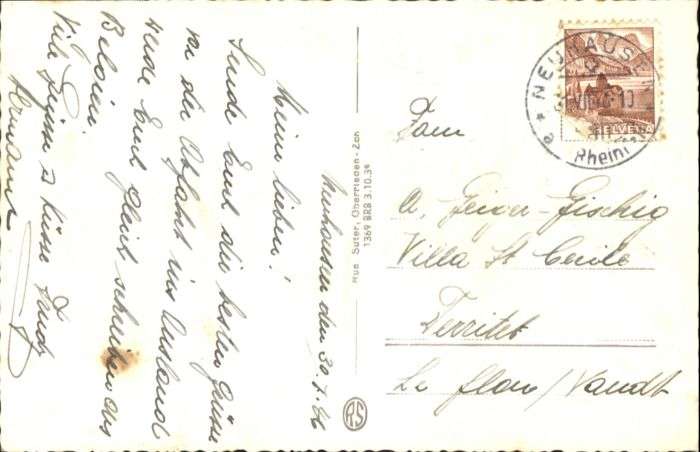 Neuhausen den 30.7.46
Meine lieben!
Sende Euch die besten Grüsse
vor der Abfahrt ins Ausland
werde Euch gleich schreiben aus
Belorin.
Viele Grüsse & Küsse
Hermann
Hub. Suter, Oberrieden-Zch
1369 BRB 3.10.39
RS
NEUHAUSEN
Rheinf
HELVETIA
Fam
A. Geiger-Fischig
Villa St Cecile
Territet
Le flon/Vaudt